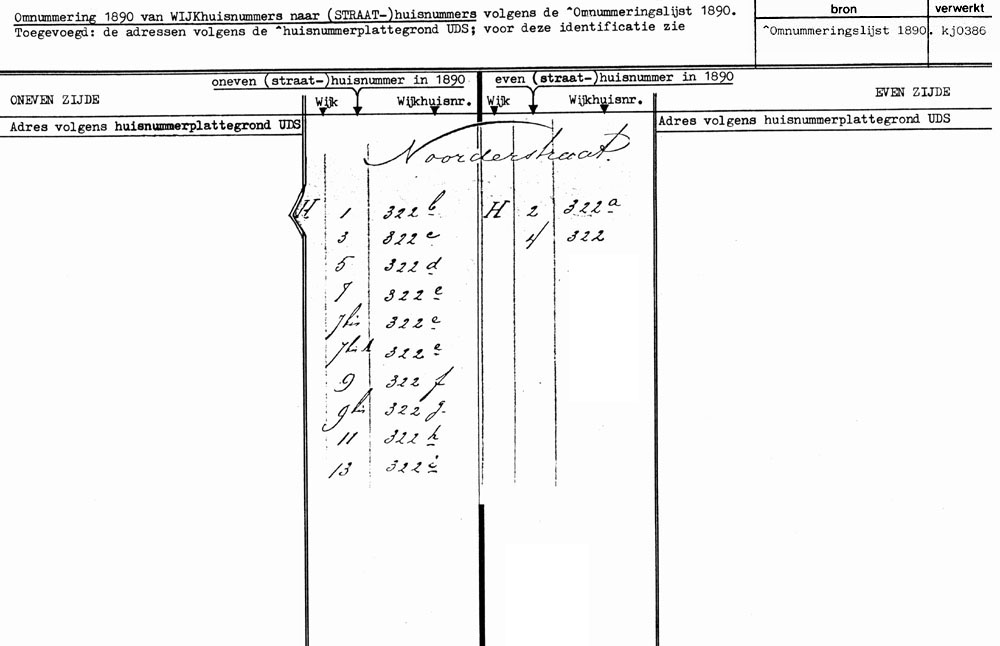 Omnummering 1890 van WIJKhuisnummers naar (STRAAT-)huisnummers volgens de ^Omnummeringslijst 1890.
Toegevoegd: de adressen volgens de ^huisnummerplattegrond UDS; voor deze identificatie zie
bron verwerkt
^Omnummeringslijst 1890. kj0386
oneven (straat-)huisnummer in 1890 even (straat-)huisnummer in 1890
ONEVEN ZIJDE Wijk Wijkhuisnr. Wijk Wijkhuisnr. EVEN ZIJDE
Adres volgens huisnummerplattegrond UDS Adres volgens huisnummerplattegrond UDS
Noorderstraat.
H 1 322 b H 2 322 a
3 322 c 4 322
5 322 d
7 322 e
7 bis 322 e
7 bis A 322 e
9 322 f
9 bis 322 g.
11 322 h
13 322 i